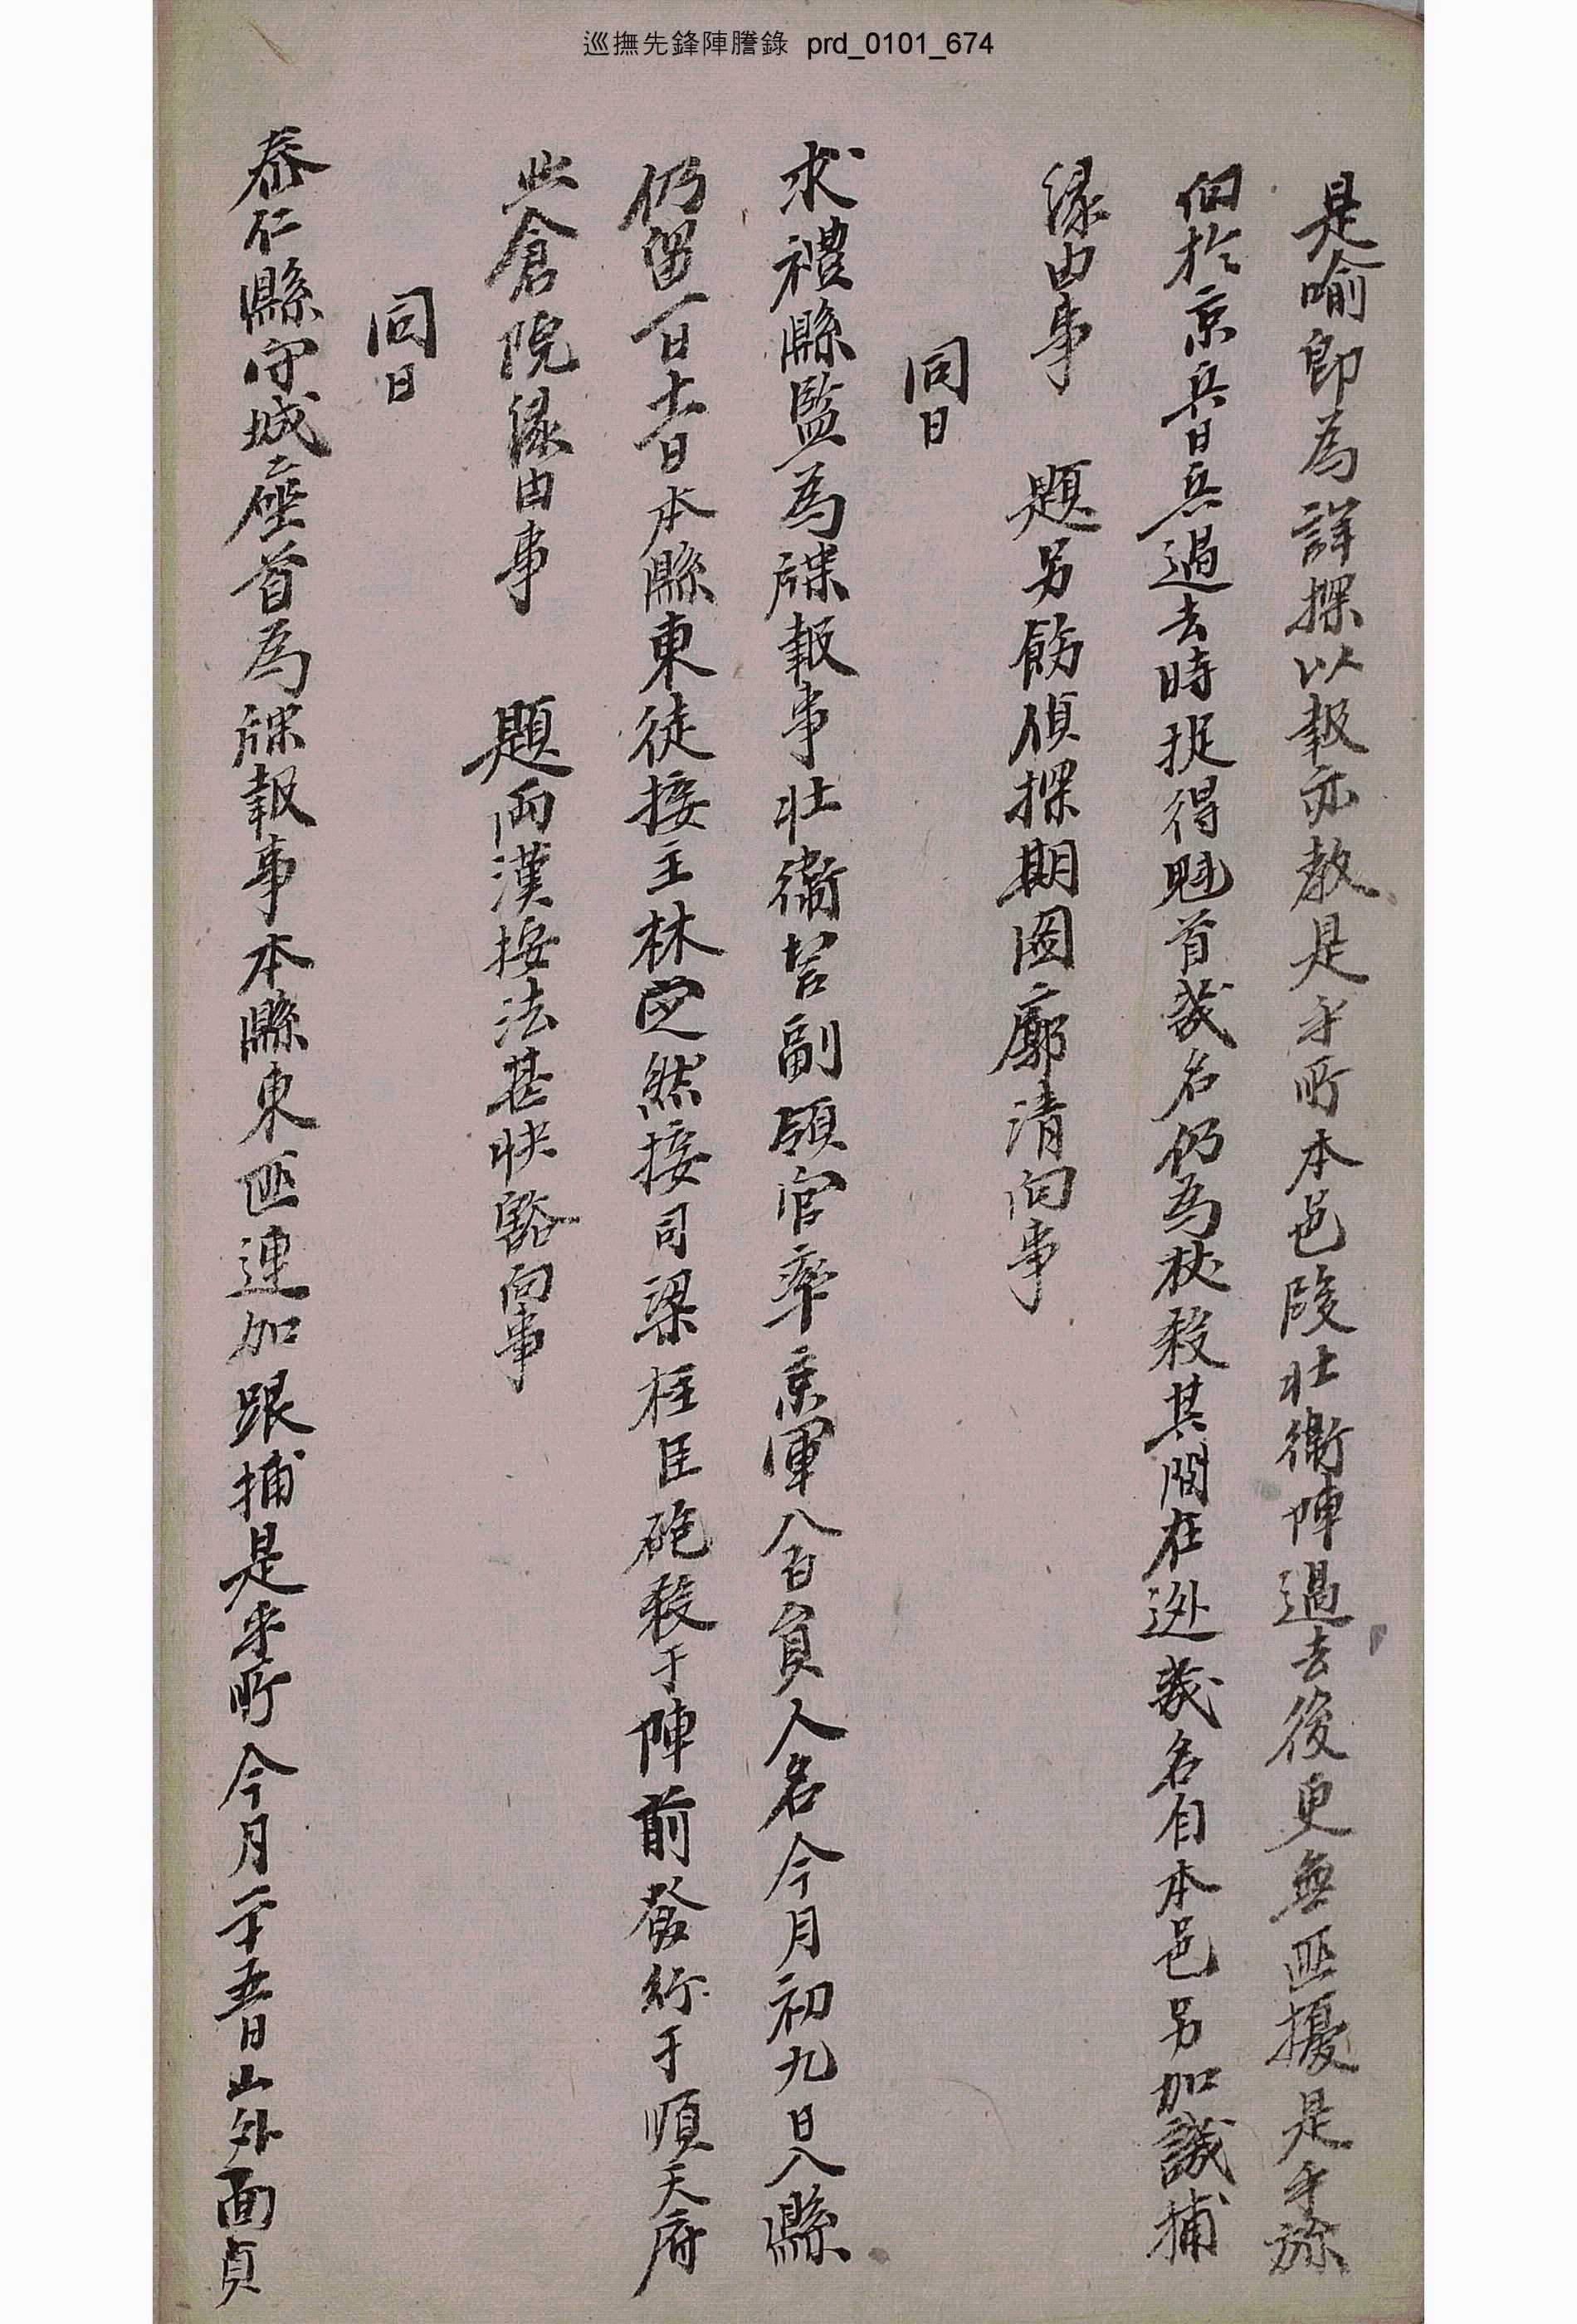 巡撫先鋒陣謄錄 prd_0101_674
是喩卽為詳探以報亦敎是乎所本邑段壯衛陣過去後更無匪擾是乎旀
向於京兵日兵過去時捉得魁首幾名仍為杖殺其間在逃幾名自本邑另加譏捕
緣由事 題另飭偵探期圖廓淸向事
同日
求禮縣監為牒報事壯衛營副領官率京軍八百員人名今月初九日入縣
仍留一日十一日本縣東徒接主林定然接司梁柱臣砲殺于陣前發行于順天府
此倉院緣由事 題兩漢按法甚快豁向事
同日
泰仁縣守城座首為牒報事本縣東匪連加跟捕是乎所今月二十五日山外面貞